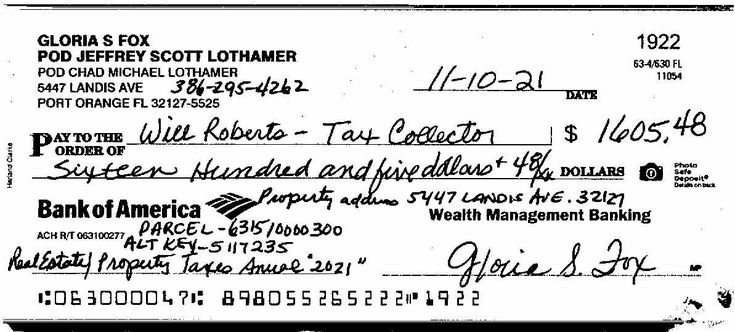 GLORIA S FOX
POD JEFFREY SCOTT LOTHAMER
POD CHAD MICHAEL LOTHAMER
5447 LANDIS AVE 386-295-4262
PORT ORANGE FL 32127-5525
1922
63-4/630 FL
11054
11-10-21
DATE
PAY TO THE ORDER OF Will Roberts - Tax Collector $ 1605.48
Sixteen Hundred and five dollars + 48/xx DOLLARS
Photo Safe Deposit®
Details on back
Harland Clarke
Property address 5447 LANDIS AVE. 32127
Bank of America Wealth Management Banking
ACH R/T 063100277 PARCEL-6315/0000300
ALT KEY-5117235
Real Estate/Property Taxes Anual "2021" Gloria S. Fox MP
⑆063000047⑆ 898055265222⑈1922